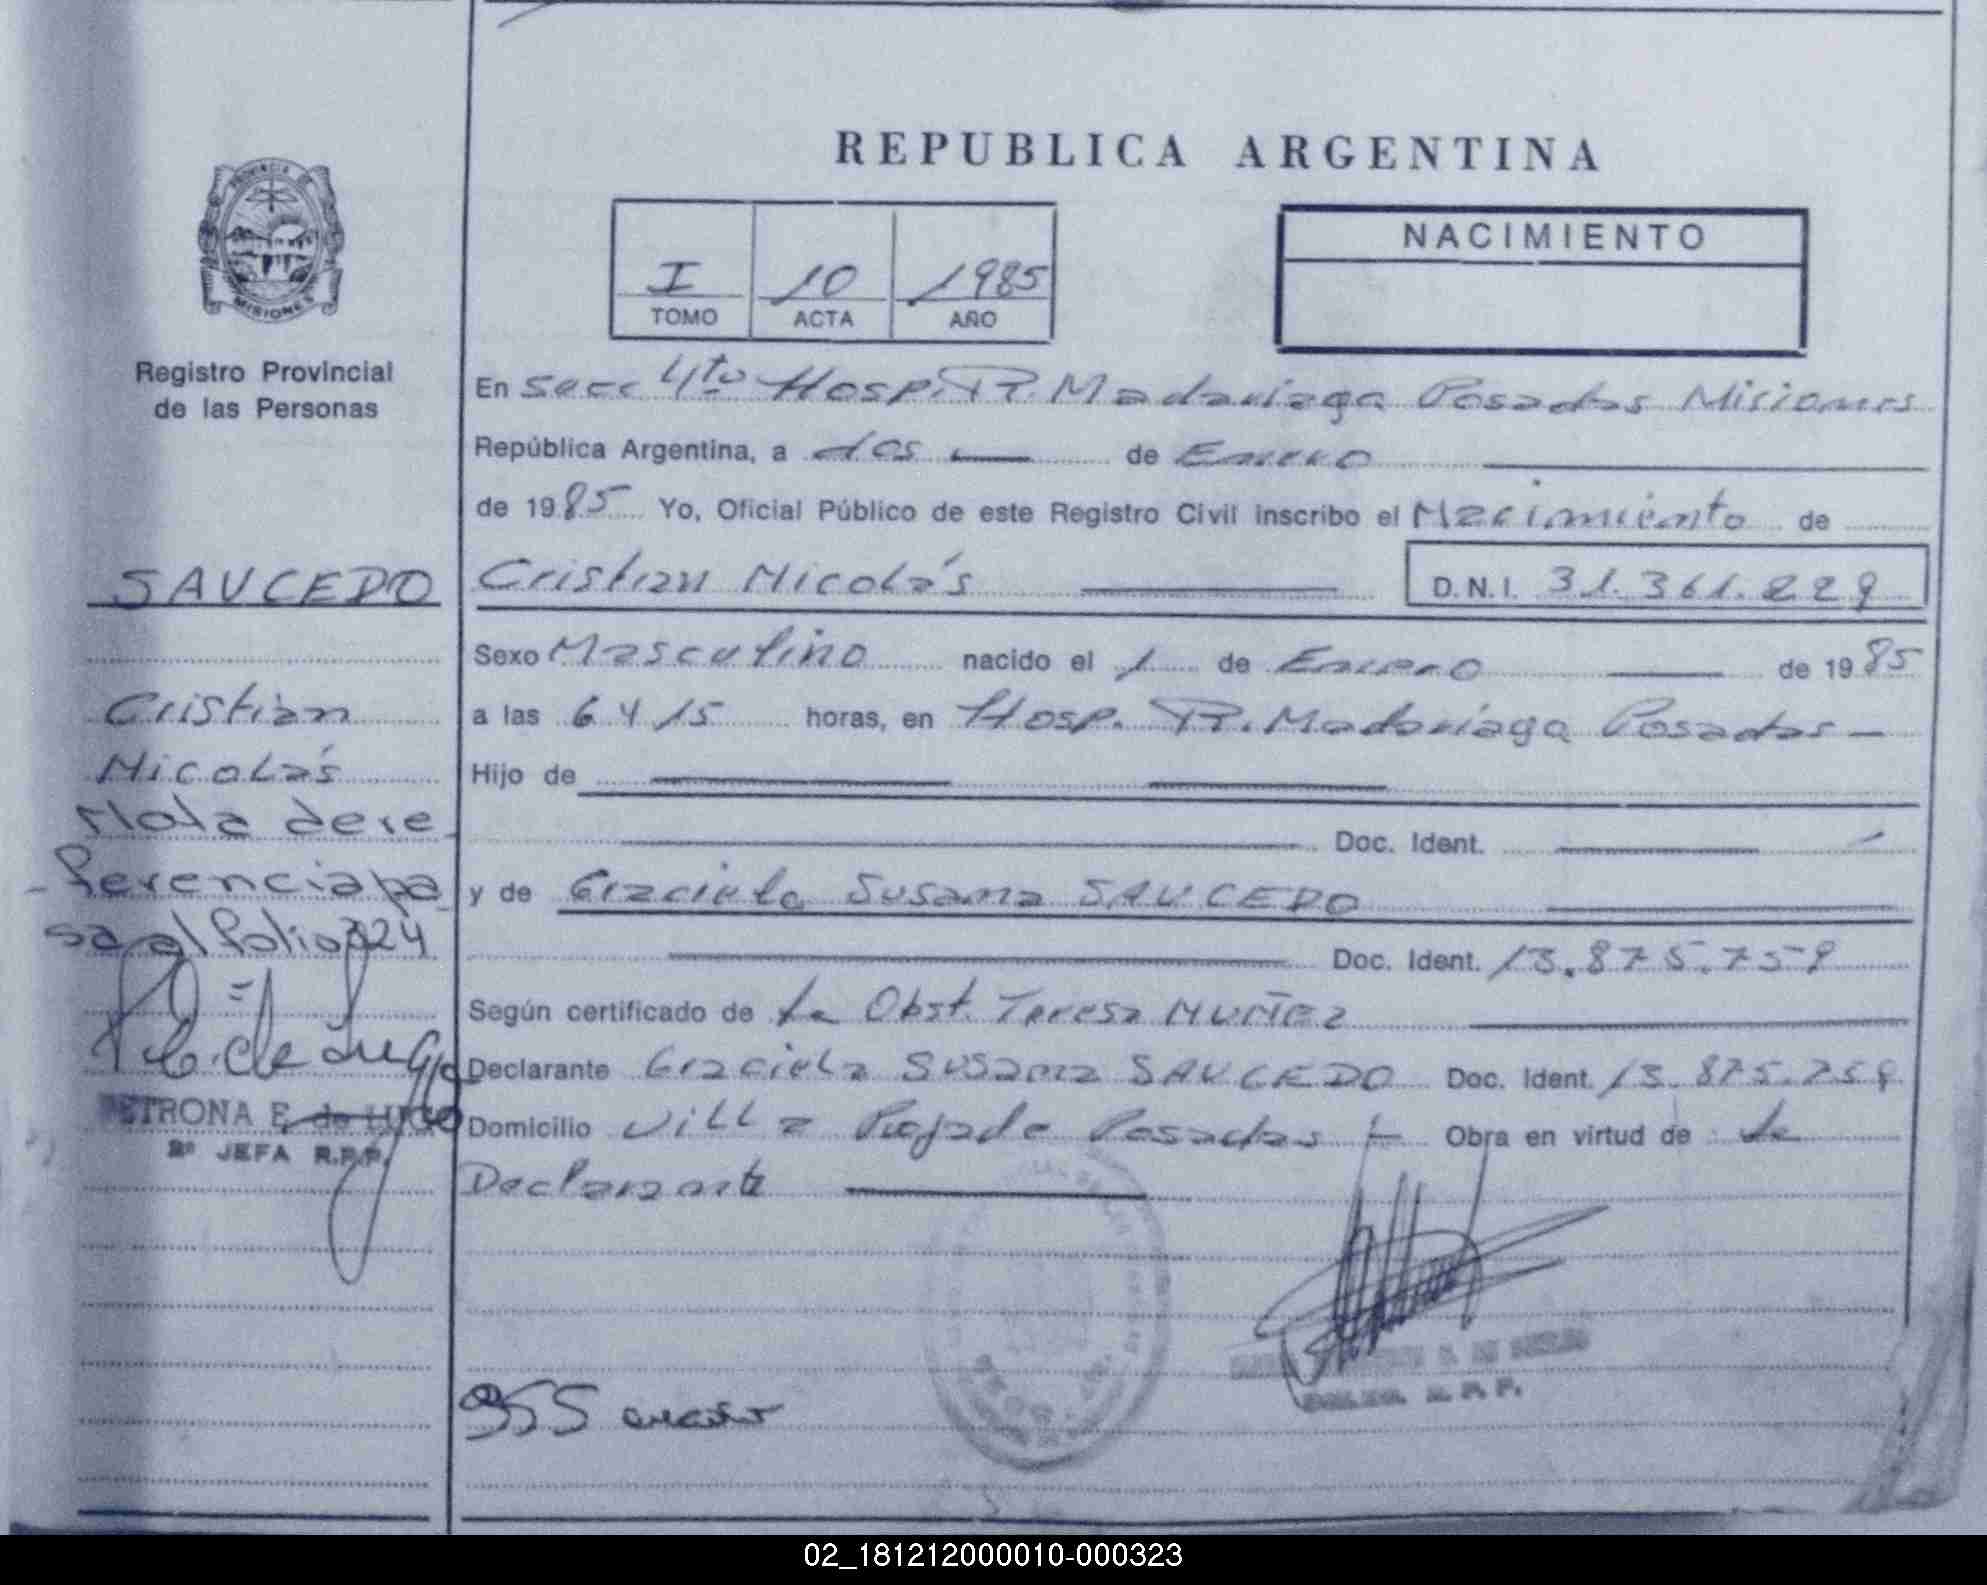 REPUBLICA ARGENTINA
PROVINCIA DE
MISIONES
Registro Provincial
de las Personas
I 10 1985
TOMO ACTA AÑO
NACIMIENTO
En Secc 4to Hosp. R. Madariaga Posadas Misiones
República Argentina, a dos de Enero
de 1985 Yo, Oficial Público de este Registro Civil inscribo el Nacimiento de
SAUCEDO
Cristian Nicolás D.N.I. 31.361.229
Sexo Masculino nacido el 1 de Enero de 1985
Cristian
a las 6 y 15 horas, en Hosp. R. Madariaga Posadas
Nicolás
Hijo de
Nota de re
Doc. Ident.
ferencia pa
y de Graciela Susana SAUCEDO
sa al folio 324
Doc. Ident. 13.875.759
Según certificado de la Obst. Teresa MUÑEZ
Declarante Graciela Susana SAUCEDO Doc. Ident. 13.875.759
PETRONA E. de LUGO
2ª JEFA R.P.P.
Domicilio Villa Posadas Obra en virtud de la
Declarante
955
R. P. P.
02_181212000010-000323